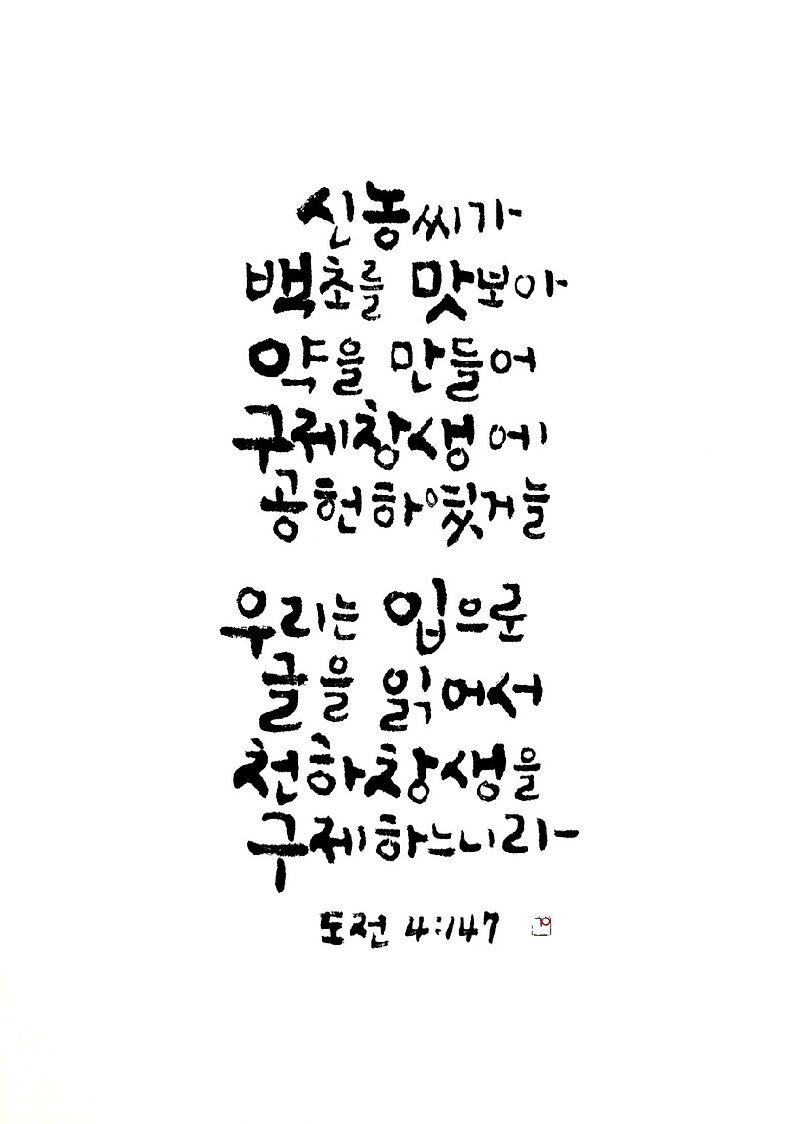 신농씨가
백초를 맛보아
약을 만들어
구제창생에
공헌하였거늘
우리는 입으로
글을 읽어서
천하창생을
구제하느니라
도전 4:147